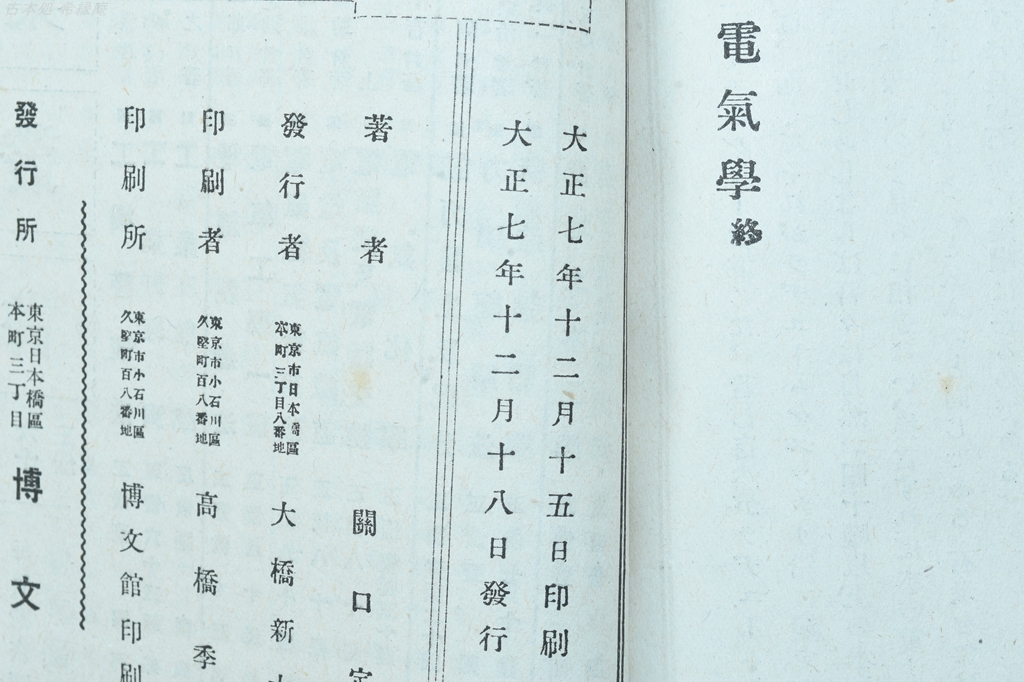 電氣學終
大正七年十二月十五日印刷
大正七年十二月十八日發行
著者 關口
發行者 東京市日本橋區
本町三丁目八番地 大橋新
印刷者 東京市小石川區
久堅町百八番地 高橋季
印刷所 東京市小石川區
久堅町百八番地 博文館印刷
發行所 東京日本橋區
本町三丁目 博文